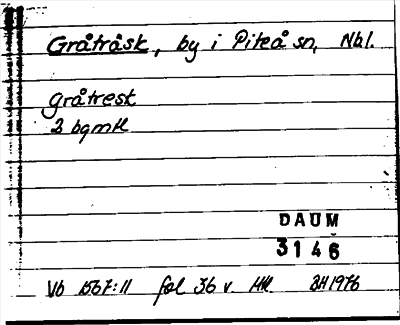 Gråträsk, by i Piteå sn, Nbl.
gråtresk
2 bgmtl
DAUM
3146
Vb 1567:11 fol 36 v HH BH 1976